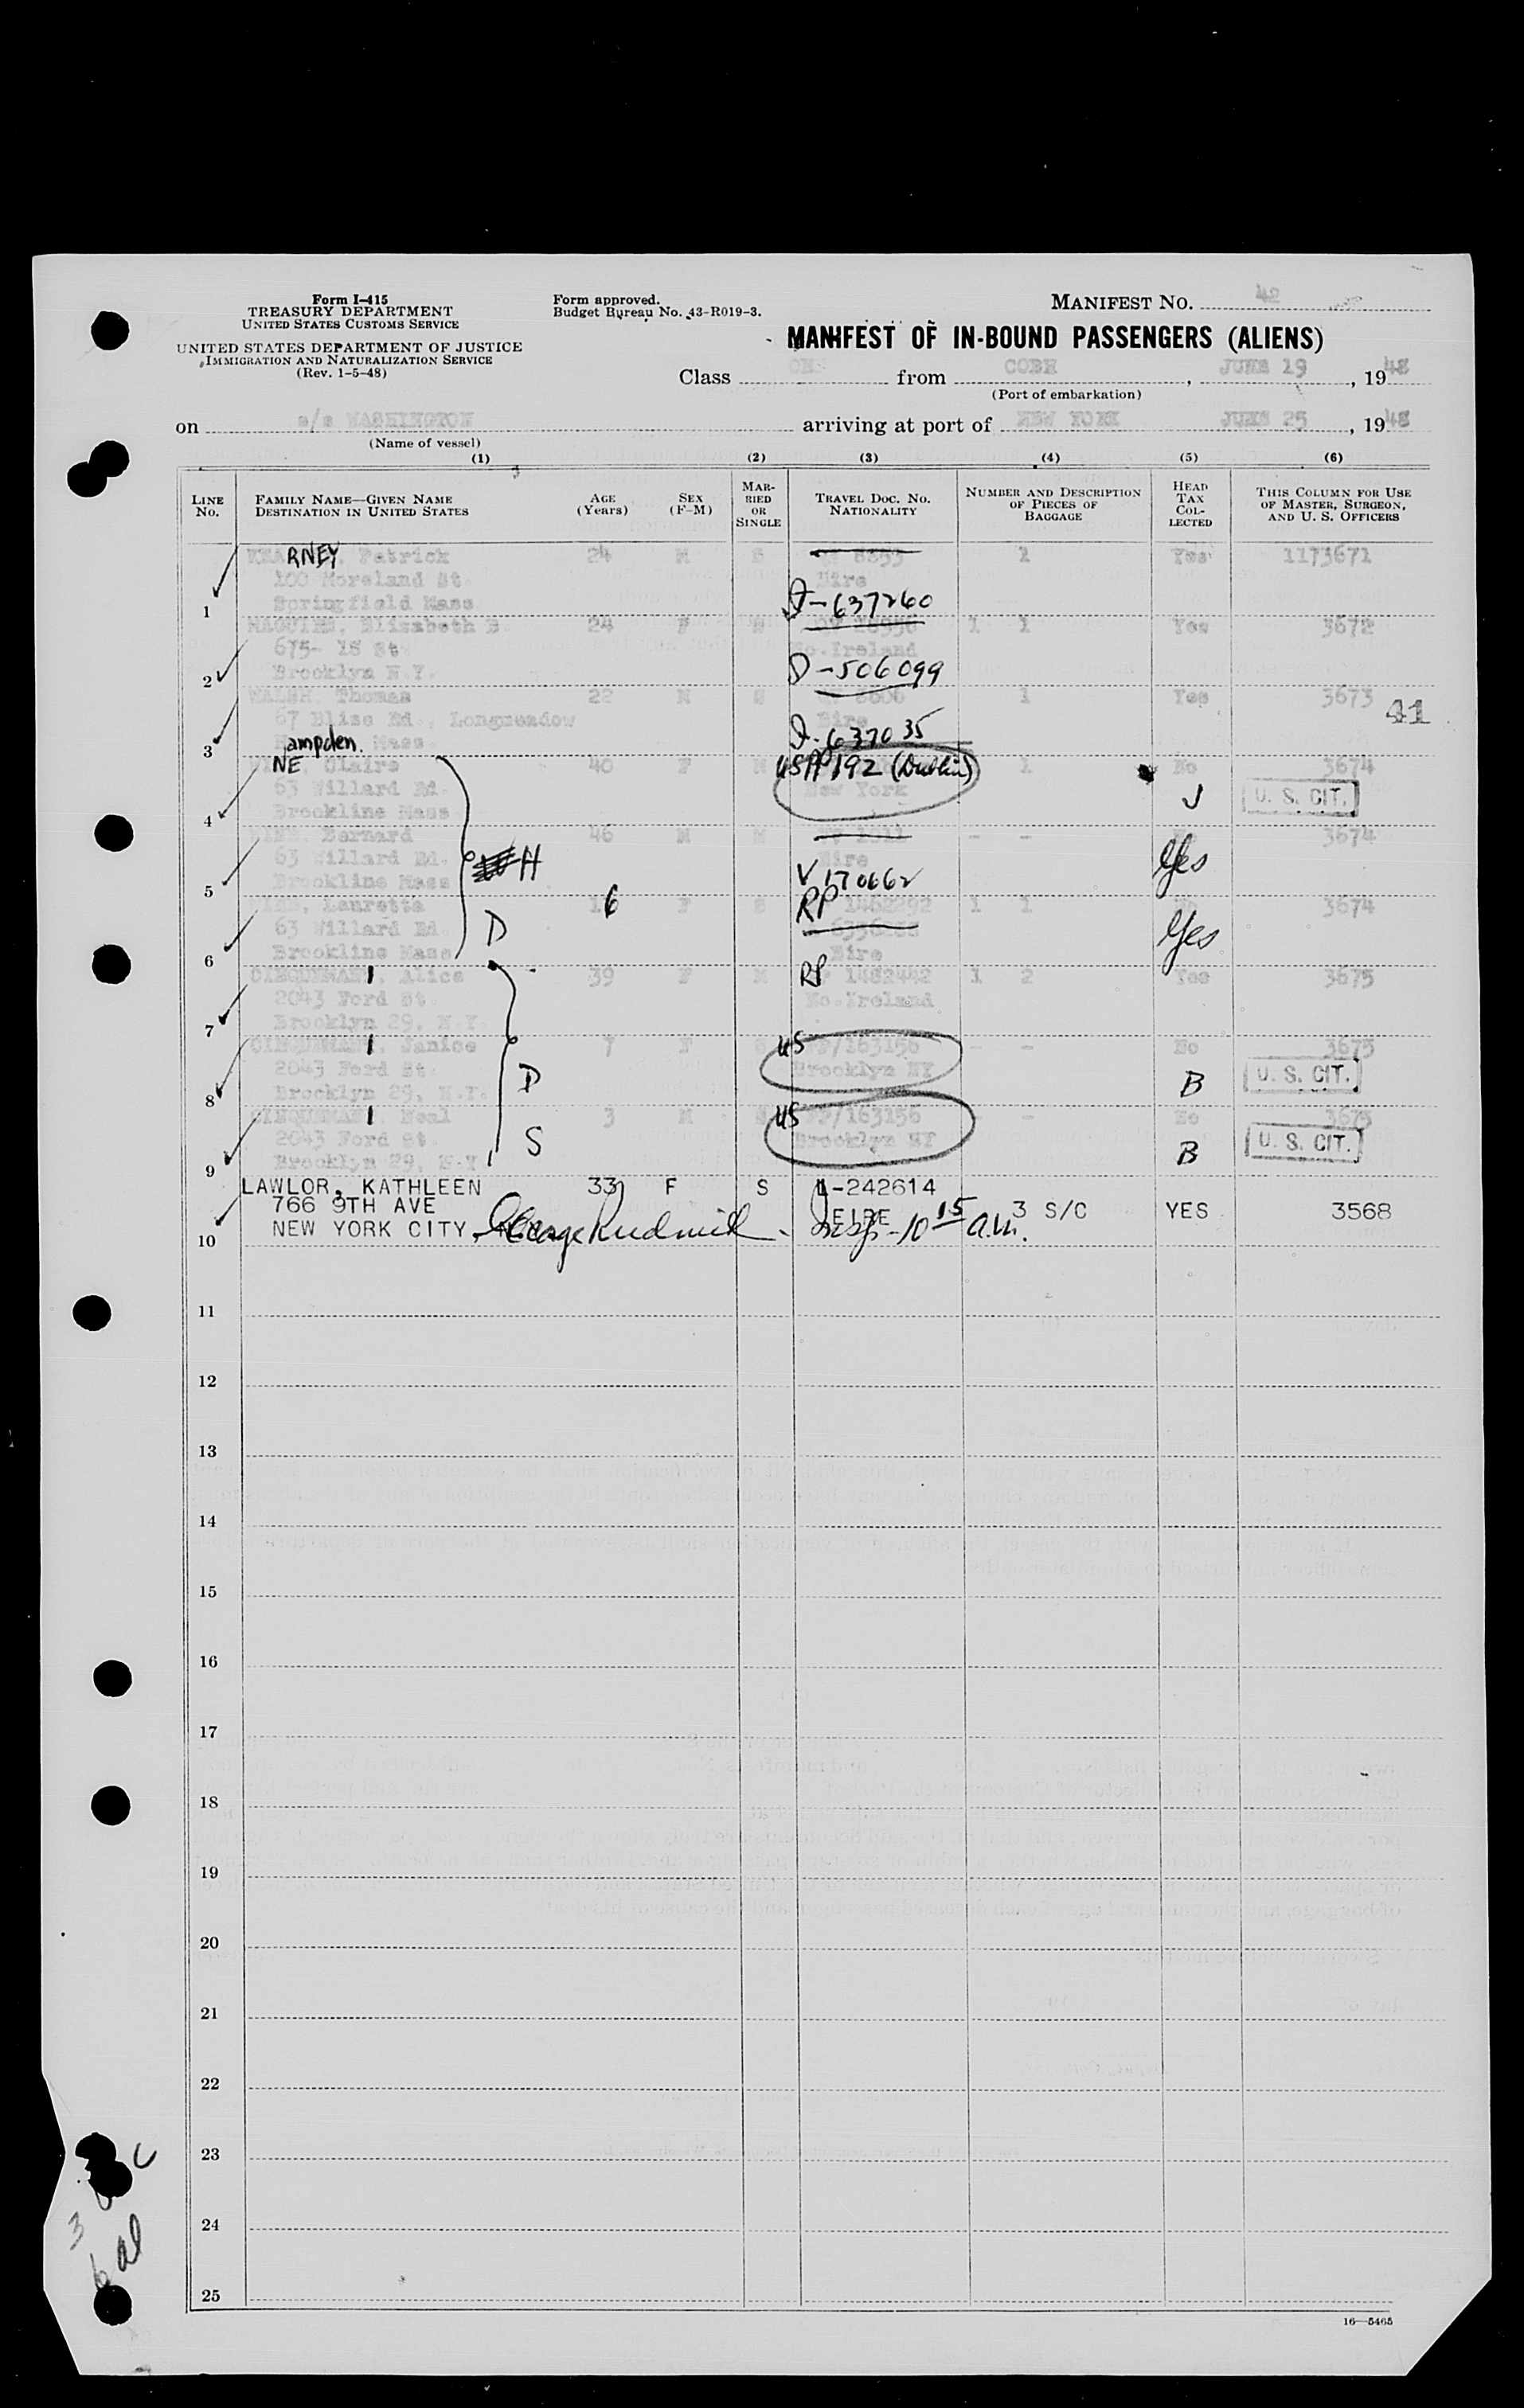 Form I-415
TREASURY DEPARTMENT
UNITED STATES CUSTOMS SERVICE
UNITED STATES DEPARTMENT OF JUSTICE
IMMIGRATION AND NATURALIZATION SERVICE
(Rev. 1-5-48)
Form approved.
Budget Bureau No. 43-R019-3.
MANIFEST NO. 42
MANIFEST OF IN-BOUND PASSENGERS (ALIENS)
Class from COBH, JUNE 19, 1948
(Port of embarkation)
on s/s WASHINGTON arriving at port of NEW YORK JUNE 25, 1948
(Name of vessel)
(1) (2) (3) (4) (5) (6)
LINE NO. FAMILY NAME—GIVEN NAME DESTINATION IN UNITED STATES AGE (Years) SEX (F-M) MARRIED OR SINGLE TRAVEL DOC. NO. NATIONALITY NUMBER AND DESCRIPTION OF PIECES OF BAGGAGE HEAD TAX COLLECTED THIS COLUMN FOR USE OF MASTER, SURGEON, AND U. S. OFFICERS
KEARNEY, Patrick 24 M S 8353 1 Yes 1173671
100 Moreland St Eire
1 Springfield Mass I-637260
Elizabeth B 24 F S 1 1 Yes 3672
675- 18 St No.Ireland
2 Brooklyn N.Y. D-506099
WALSH, Thomas 22 M S 1 Yes 3673 41
67 Bliss Rd., Longmeadow Eire
3 Hampden. Mass I-637035
Claire 40 F M USPP 192 (Dublin) 1 No 3674
63 Willard Rd New York
4 Brookline Mass J U. S. CIT.
Bernard 46 M M 2011 - - 3674
63 Willard Rd H Eire Yes
5 Brookline Mass V170662
Lauretta 16 6 F S RP 1462292 1 1 No 3674
63 Willard Rd D Yes
6 Brookline Mass Eire
Alice 39 F M RP 1482442 1 2 Yes 3675
2043 Ford St No.Ireland
7 Brooklyn 29, N.Y.
Janice 7 F S US PP/163156 - - No 3675
2043 Ford St D Brooklyn NY
8 Brooklyn 29, N.Y. B U. S. CIT.
Neal 3 M S US PP/163156 - - No 3675
2043 Ford St S Brooklyn NY
9 Brooklyn 29, N.Y. B U. S. CIT.
LAWLOR, KATHLEEN 33 F S I-242614
766 9TH AVE EIRE 3 S/C YES 3568
10 NEW YORK CITY, Insp-10 15 a.m.
11
12
13
14
15
16
17
18
19
20
21
22
23
24
25
16—5465